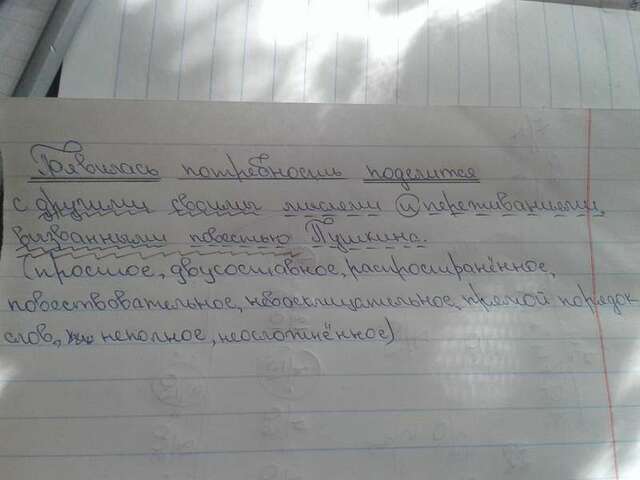 Появилась потребность поделится
с другими своими мыслями и переживаниями,
вызванными повестью Пушкина.
(простое, двусоставное, распространённое,
повествовательное, невосклицательное, прямой порядок
слов, неполное, неосложнённое)